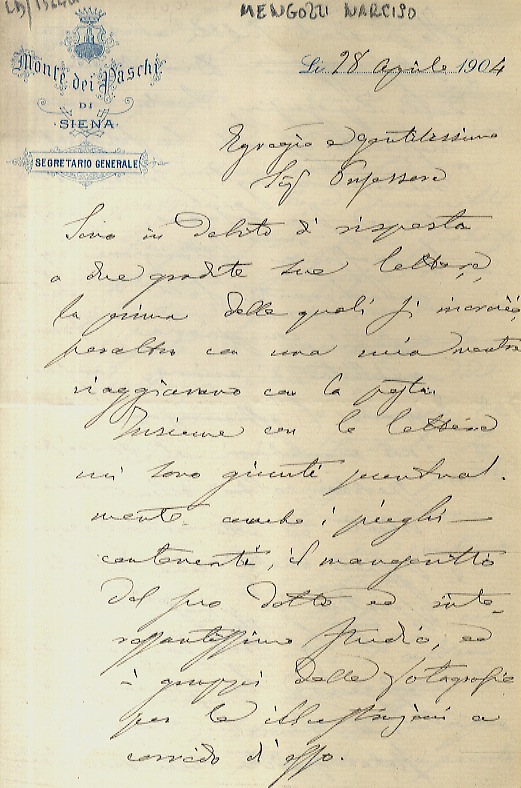 MENGOZZI NARCISO
Monte dei Paschi
DI
SIENA
SEGRETARIO GENERALE
Li 28 aprile 1904
Egregio e Gentilissimo
Sig Professore
Sono in debito di risposta
a due gradite sue lettere,
la prima delle quali si incrociò
peraltro con una mia mentre
viaggiavano con la posta.
Insieme con le lettere
mi sono giunti puntual-
mente anche i pieghi
contenenti, il manoscritto
del suo dotto ed inte-
ressantissimo studio, ed
i gruppi delle fotografie
per le illustrazioni a
corredo d'esso.